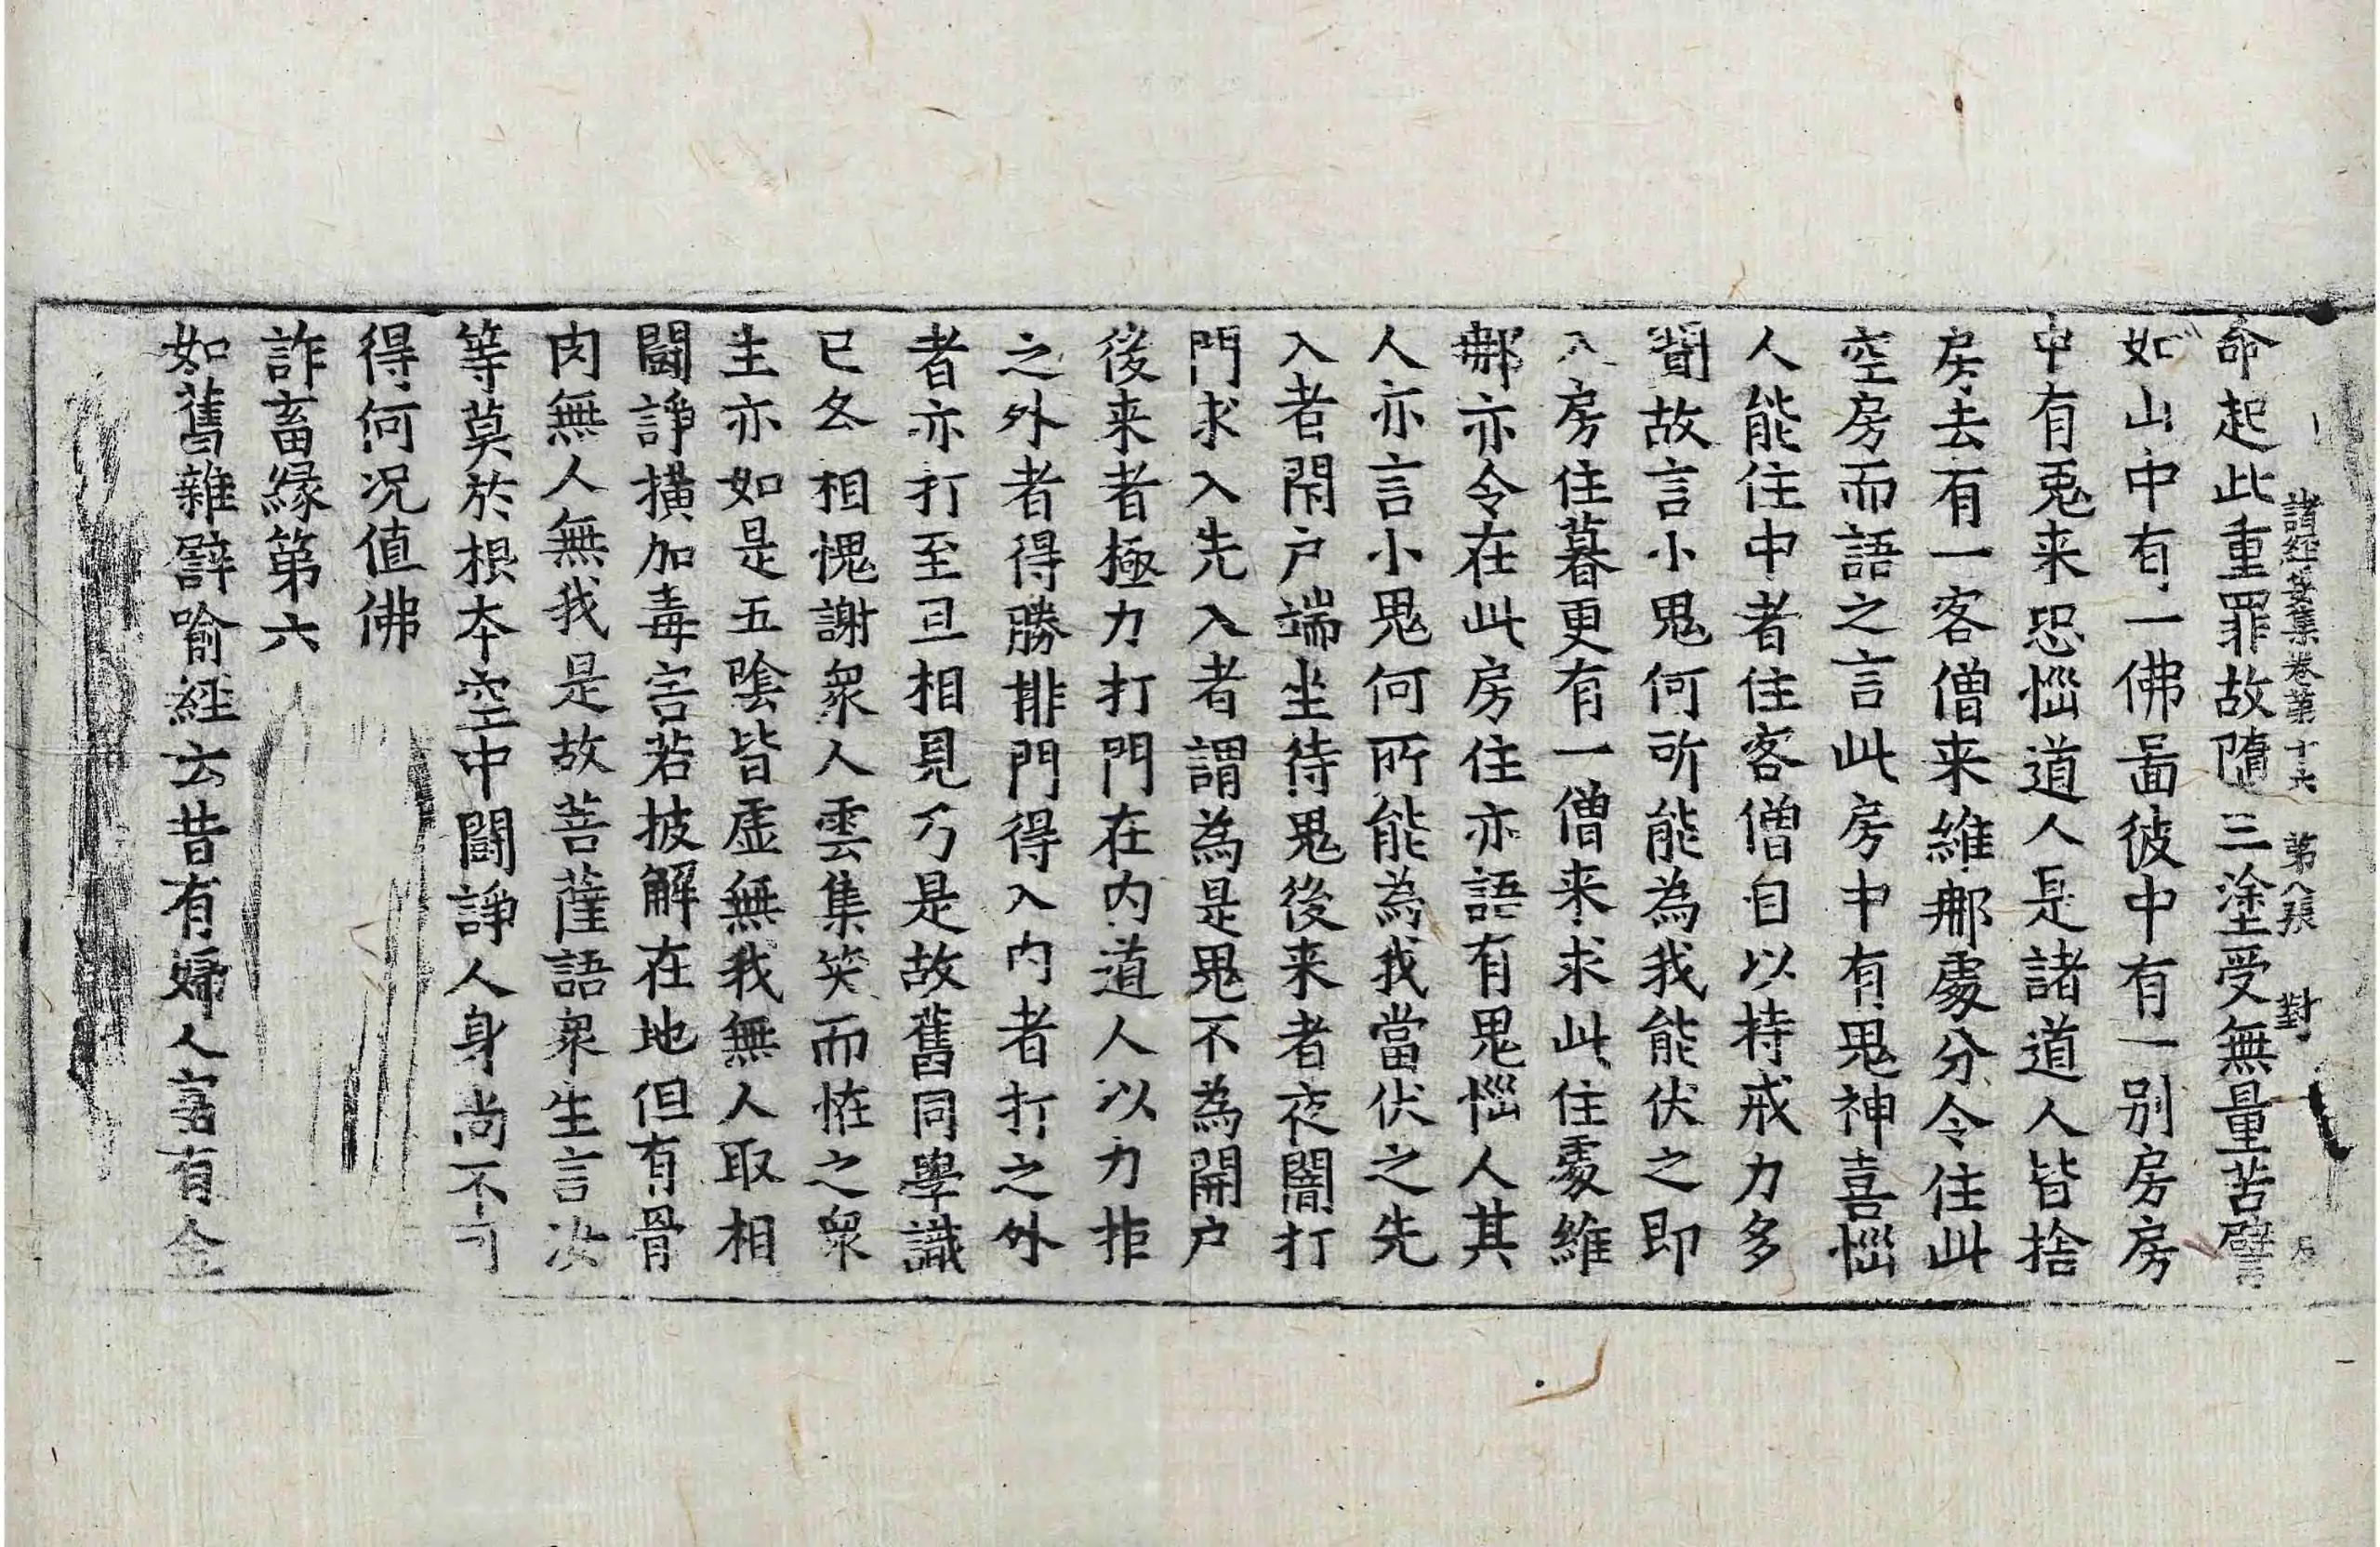 諸經要集卷第十六 第八張 對
命起此重罪故墮三塗受無量苦譬
如山中有一佛啚彼中有一別房房
中有鬼来恐惱道人是諸道人皆捨
房去有一客僧来維那處分令住此
空房而語之言此房中有鬼神喜惱
人能住中者住客僧自以持戒力多
聞故言小鬼何所能為我能伏之即
入房住暮更有一僧来求此住處維
那亦令在此房住亦語有鬼惱人其
人亦言小鬼何所能為我當伏之先
入者閇户端坐待鬼後来者夜闇打
門求入先入者謂為是鬼不為開户
後来者極力打門在内道人以力拒
之外者得勝排門得入内者打之外
者亦打至旦相見乃是故舊同學識
已各相愧謝衆人雲集笑而恠之衆
生亦如是五陰皆虚無我無人取相
鬪諍横加毒害若披解在地但有骨
肉無人無我是故菩薩語衆生言汝
等莫於根本空中鬪諍人身尚不可
得何况值佛
詐畜緣第六
如舊雜譬喻經云昔有婦人富有金